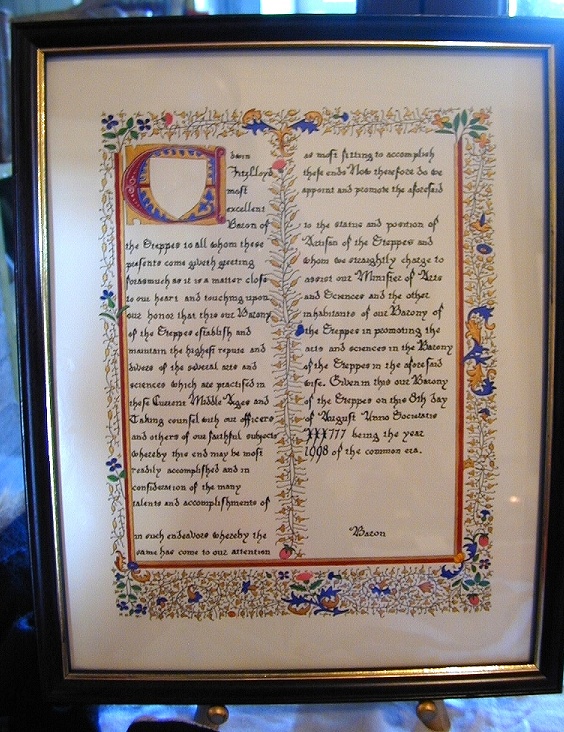 Edwin
Fitzlloyd
most
excellent
Baron of
the Steppes to all whom these
presents come giveth greeting
forasmuch as it is a matter close
to our heart and touching upon
our honor that this our Barony
of the Steppes establish and
maintain the highest repute and
of the several arts and
sciences which are practised in
these Current Middle Ages and
Taking counsel with our officers
and others of our faithful subjects
whereby this end may be most
readily accomplished and in
consideration of the many
talents and accomplishments of
in such endeavors whereby the
same has come to our attention
as most fitting to accomplish
these ends Now therefore do we
appoint and promote the aforesaid
to the status and position of
Artisan of the Steppes and
whom we straightly charge to
assist our Minister of Arts
and Sciences and the other
inhabitants of our Barony of
the Steppes in promoting the
arts and sciences in the Barony
of the Steppes in the aforesaid
wise. Given in this our Barony
of the Steppes on this 8th day
of August Anno Societatis
being the year
1998 of the common era.
Baron